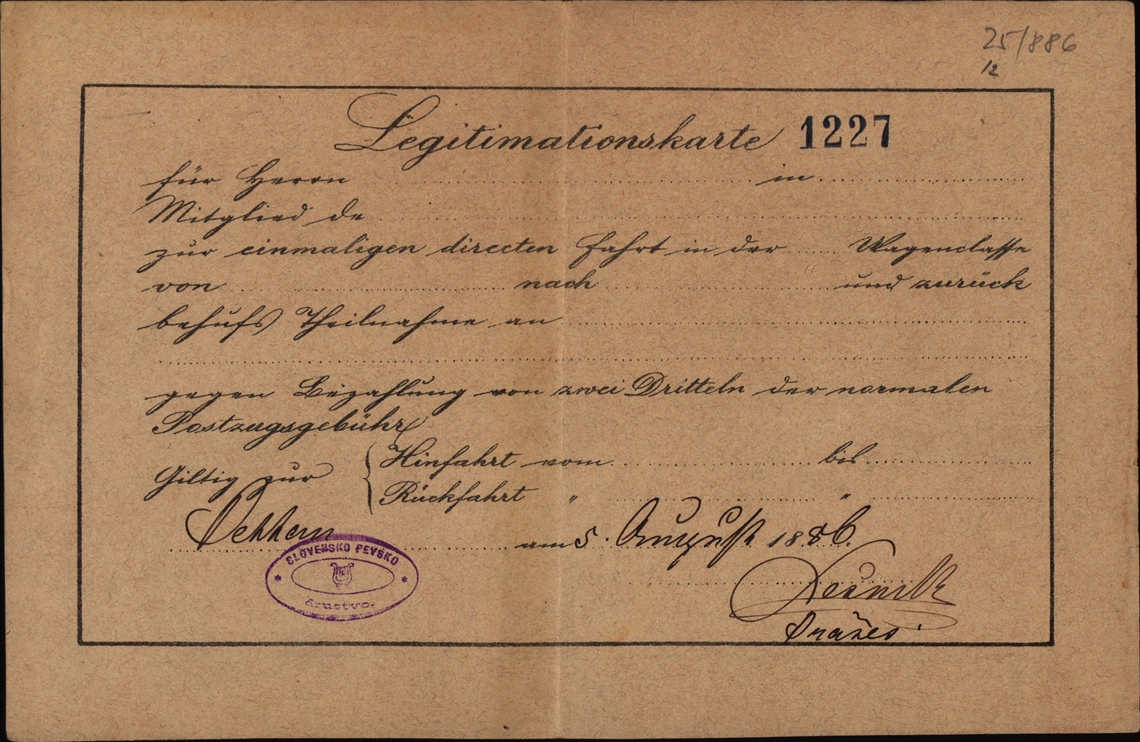 25/886
12
Legitimationskarte 1227
für Herrn in
Mitglied de
zur einmaligen directen Fahrt in der Wagenclasse
von nach und zurück
behufs Theilnahme an
gegen Bezahlung von zwei Dritteln der normalen
Postzugsgebühr
Giltig zur Hinfahrt vom bis
Rückfahrt " "
am 5. August 1886.
SLOVENSKO PEVSKO
društvo.